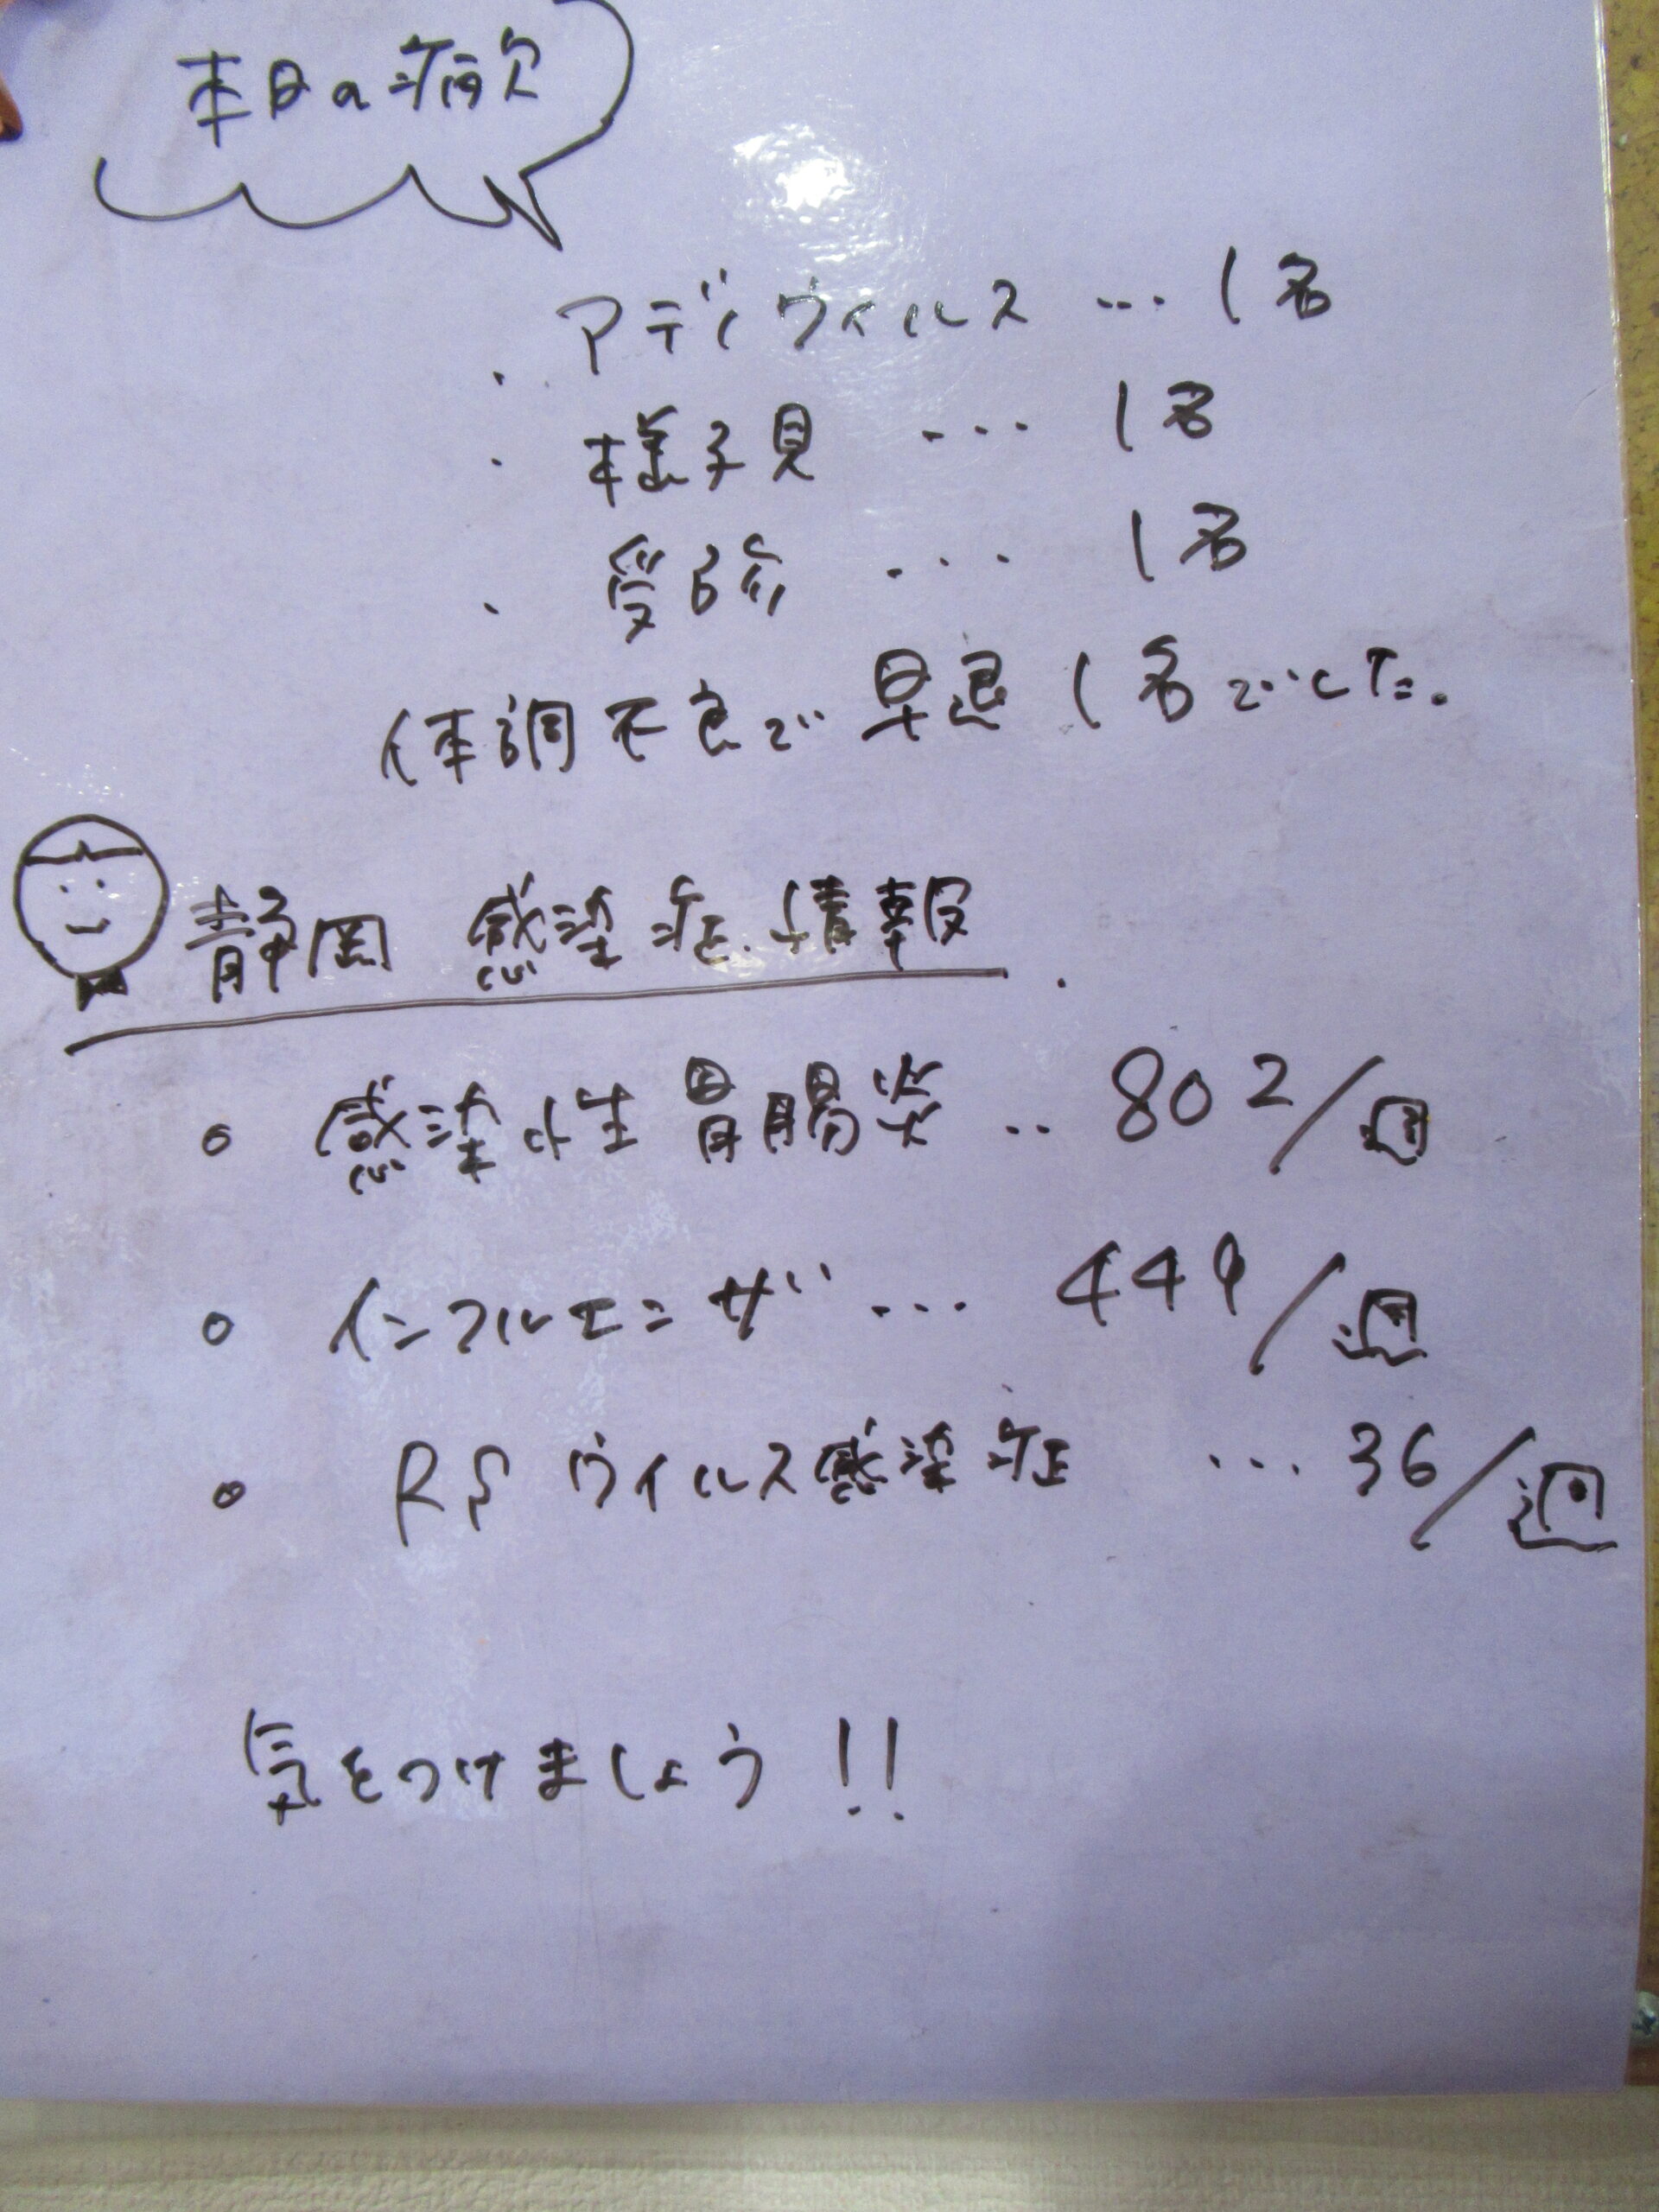 本日の病欠
アデノウィルス … 1名
・様子見 … 1名
・受診 … 1名
体調不良で早退1名でした。
静岡 感染症情報
○ 感染性胃腸炎 ‥ 802/週
○ インフルエンザ … 449/週
○ RSウイルス感染症 … 36/週
気をつけましょう!!